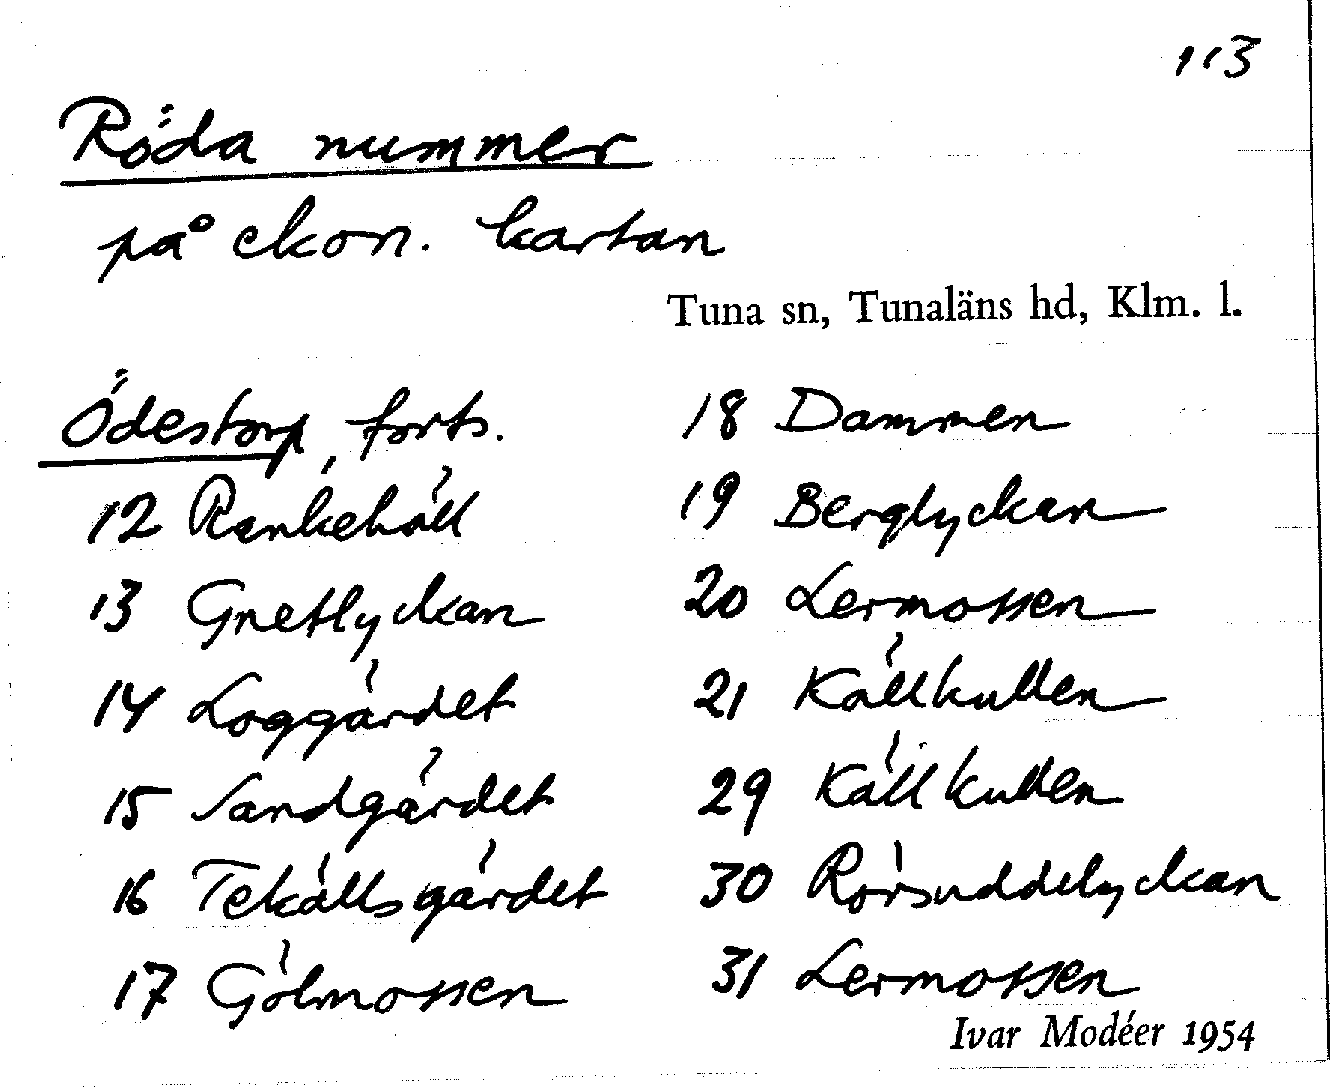 113
Röda nummer
på ekon. kartan
Tuna sn, Tunaläns hd, Klm. l.
Ödestorp, forts.
12 Rankehäll
13 Gnetlyckan
14 Loggärdet
15 Sandgärdet
16 Tekällsgärdet
17 Gölmossen
18 Dammen
19 Berglyckan
20 Lermossen
21 Källkullen
29 Källkullen
30 Rörsuddelyckan
31 Lermossen
Ivar Modéer 1954